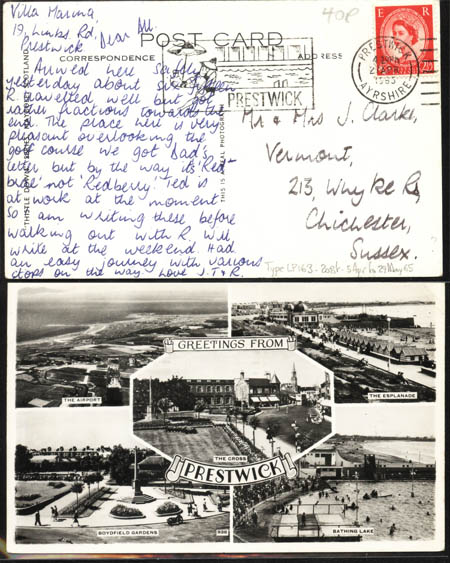 Villa Marina,
19, Links Rd,
Prestwick
Dear All.
40P
POST CARD
CORRESPONDENCE
ADDRESS
E R
2½D
PRESTWICK
AYRSHIRE
PRESTWICK
Arrived here safely
yesterday about
R travelled well but got
rather fractious towards the
end. The place here is very
pleasant overlooking the
golf course we got Dad's
letter but by the way its 'Red-
brae' not 'Redberry'. Ted is
at work at the moment
so am writing these before
walking out with R. Will
write at the weekend. Had
an easy journey with various
stops on the way. Love J.T & R.
THIS IS A REAL PHOTOGRAPH
Mr & Mrs J. Clarke,
Vermont,
213, Whyke Rd,
Chichester,
Sussex.
Type LP163 - 20857 - 5 Apr to 29 May 65
GREETINGS FROM
THE AIRPORT
THE ESPLANADE
THE CROSS
PRESTWICK
BOYDFIELD GARDENS
BATHING LAKE